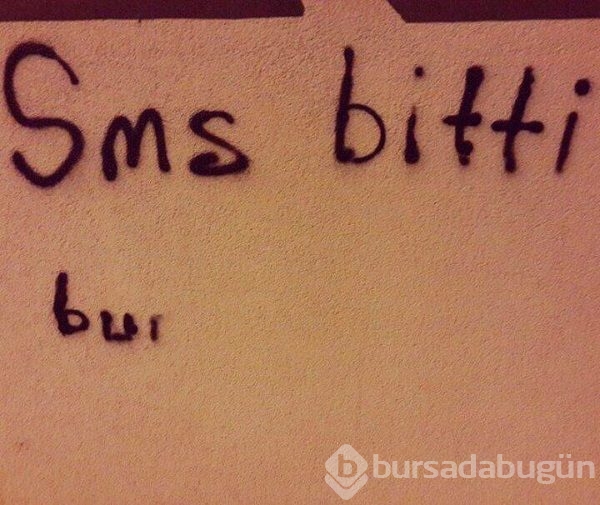 Sms bitti
bur
bursadabugün